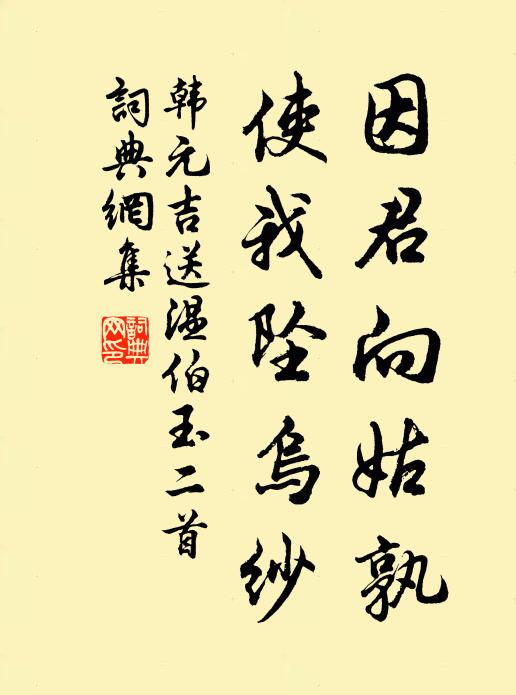 因君向姑孰
使我坠乌纱
韩元吉送温伯玉二首
詞典網集
詞典網印